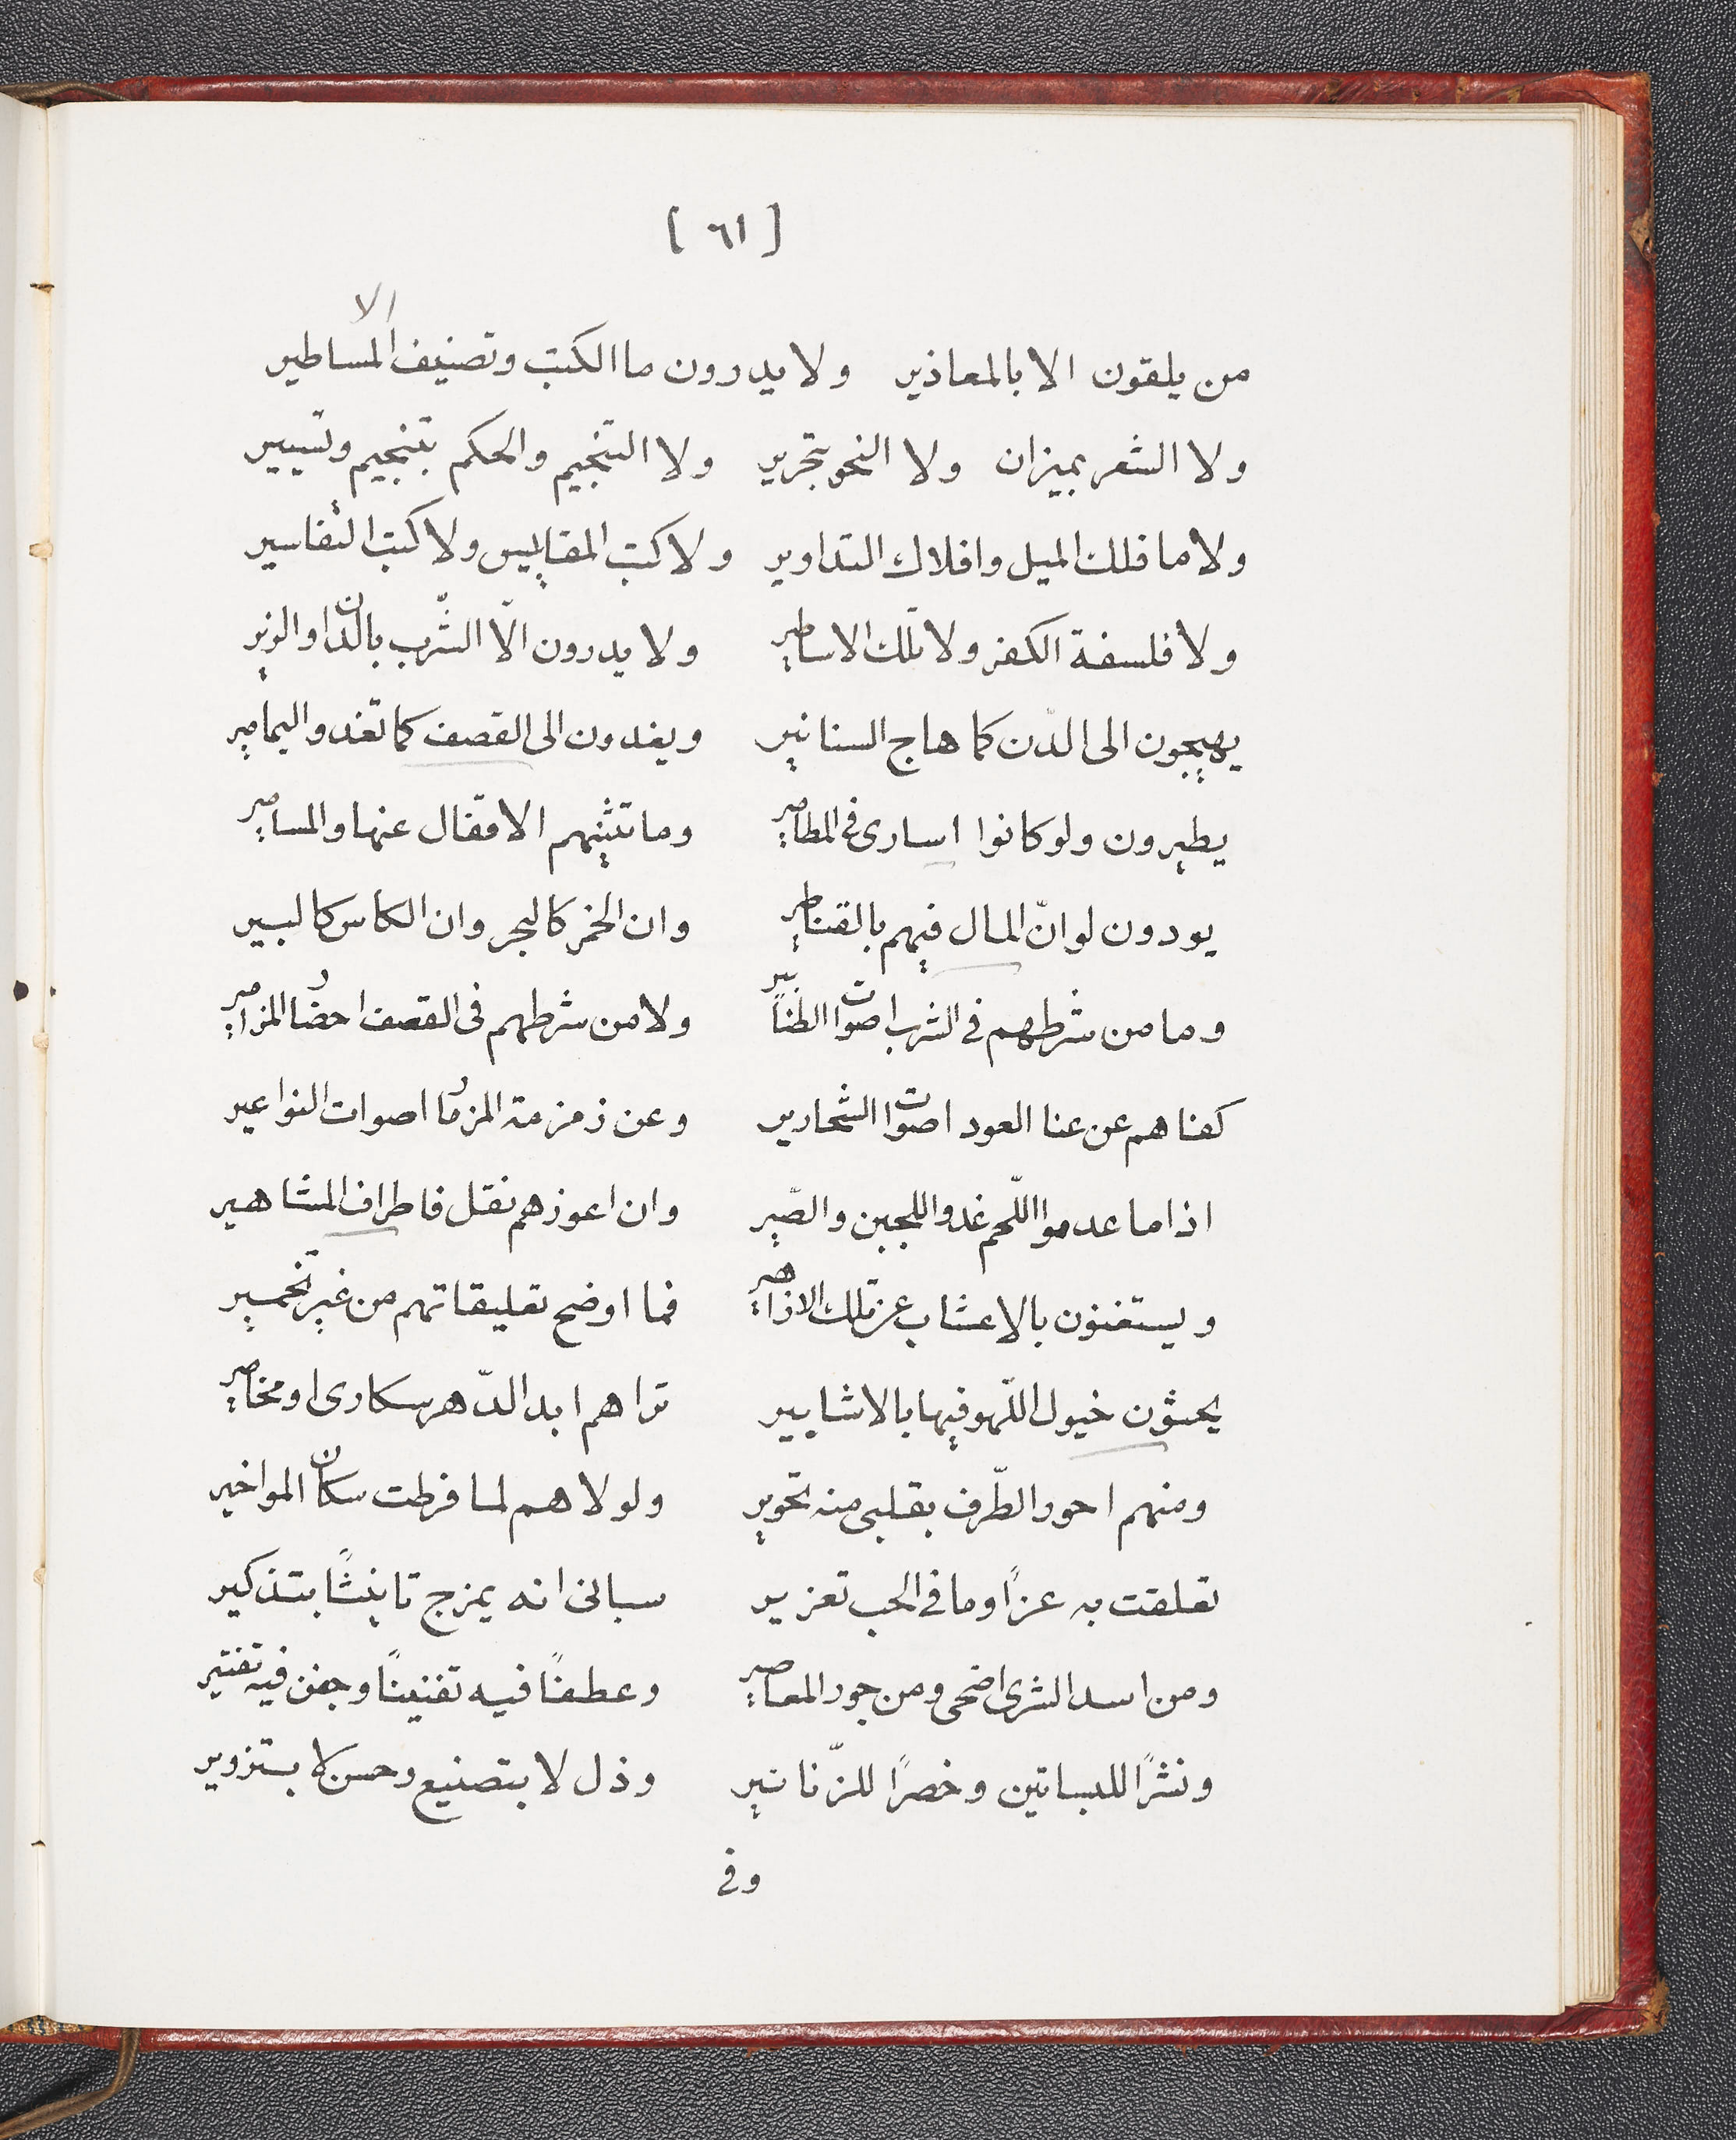 [ ٦١ ]
الا
من يلقون الا بالمعاذير ولا يدرون ما الكتب وتصنيف المساطير
ولا الشعر بميزان ولا النحو بتحرير ولا التنجيم والحكم بتنجيم وتسيير
ولا ما فلك الميل وافلاك التداوير ولا كتب المقاييس ولا كتب التفاسير
ولا فلسفة الكفر ولا تلك الاساطير ولا يدرون الّا الشّرب بالدّن او الزير
يهيجون الى الدّن كما هاج السنانير ويغدون الى القصف كما تغدو اليمامير
يطيرون ولو كانوا اسارى فى المطامير وما تثنيهم الاقفال عنها والمسامير
يودون لو انّ المال فيهم بالقناطير وان الخمر كالبحر وان الكاس كالبير
وما من شرطهم فى الشرب اصوات الطنابير ولا من شرطهم فى القصف احضار المزامير
كفاهم عن عنا العود اصوات الشحارير وعن زمزمة المزمار اصوات النواعير
اذا ما عدموا اللّحم غدو اللجبن والصّير وان اعوزهم نقل فاطراف المشاهير
ويستغنون بالاعشاب عن تلك الازاهير فما اوضح تعليقاتهم من غير تخمير
يحثون خيول اللّهو فيها بالاشابير تراهم ابد الدّهر سكارى او مخامير
ومنهم احور الطّرف بقلبى منه تحوير ولولاهم لما فرطت سكان المواخير
تعلقت به عزًا وما فى الحب تعزير سبانى انه يمزج تانيثًا بتذكير
ومن اسد الشرى اضحى ومن جور المعاصير وعطفًا فيه تفنينًا وجفن فيه تفتير
ونشرًا للبساتين وخصرًا للزّنانير وذل لا بتصنيع وحسن لا بتزوير
وفى